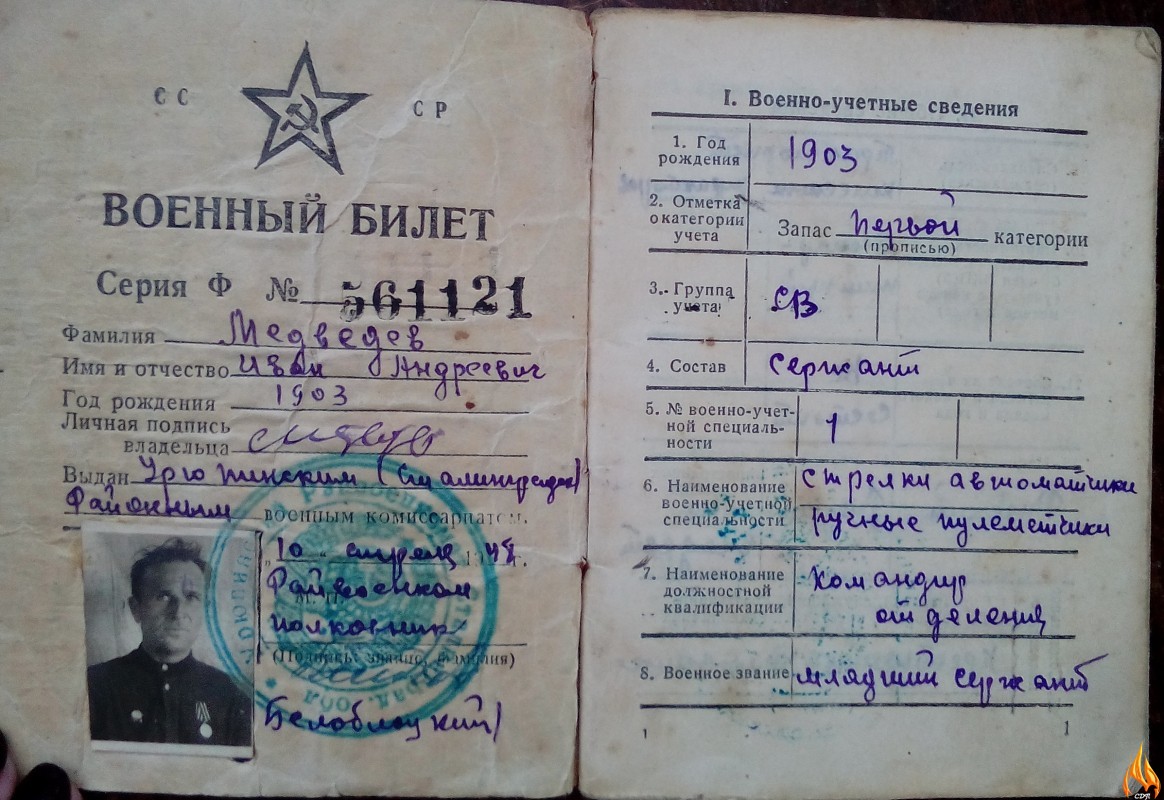 СС СР
ВОЕННЫЙ БИЛЕТ
Серия Ф № 561121
Фамилия Медведев
Имя и отчество Иван Андреевич
Год рождения 1903
Личная подпись
владельца
Выдан Урюпинским (Сталинградск)
Районным военным комиссариатом.
„10 апреля 194 г.
Райвоенком
полковник
(Подпись, звание, фамилия)
Белоблоцкий)
I. Военно-учетные сведения
1. Год
рождения
1903
2. Отметка
о категории
учета
Запас первой категории
(прописью)
3. Группа
учета
СВ
4. Состав
Сержант
5. № военно-учет-
ной специаль-
ности
1
6. Наименование
военно-учетной
специальности
стрелки автоматчики
ручные пулеметчики
7. Наименование
должностной
квалификации
Командир
отделения
8. Военное звание младший сержант
1
1
CDA